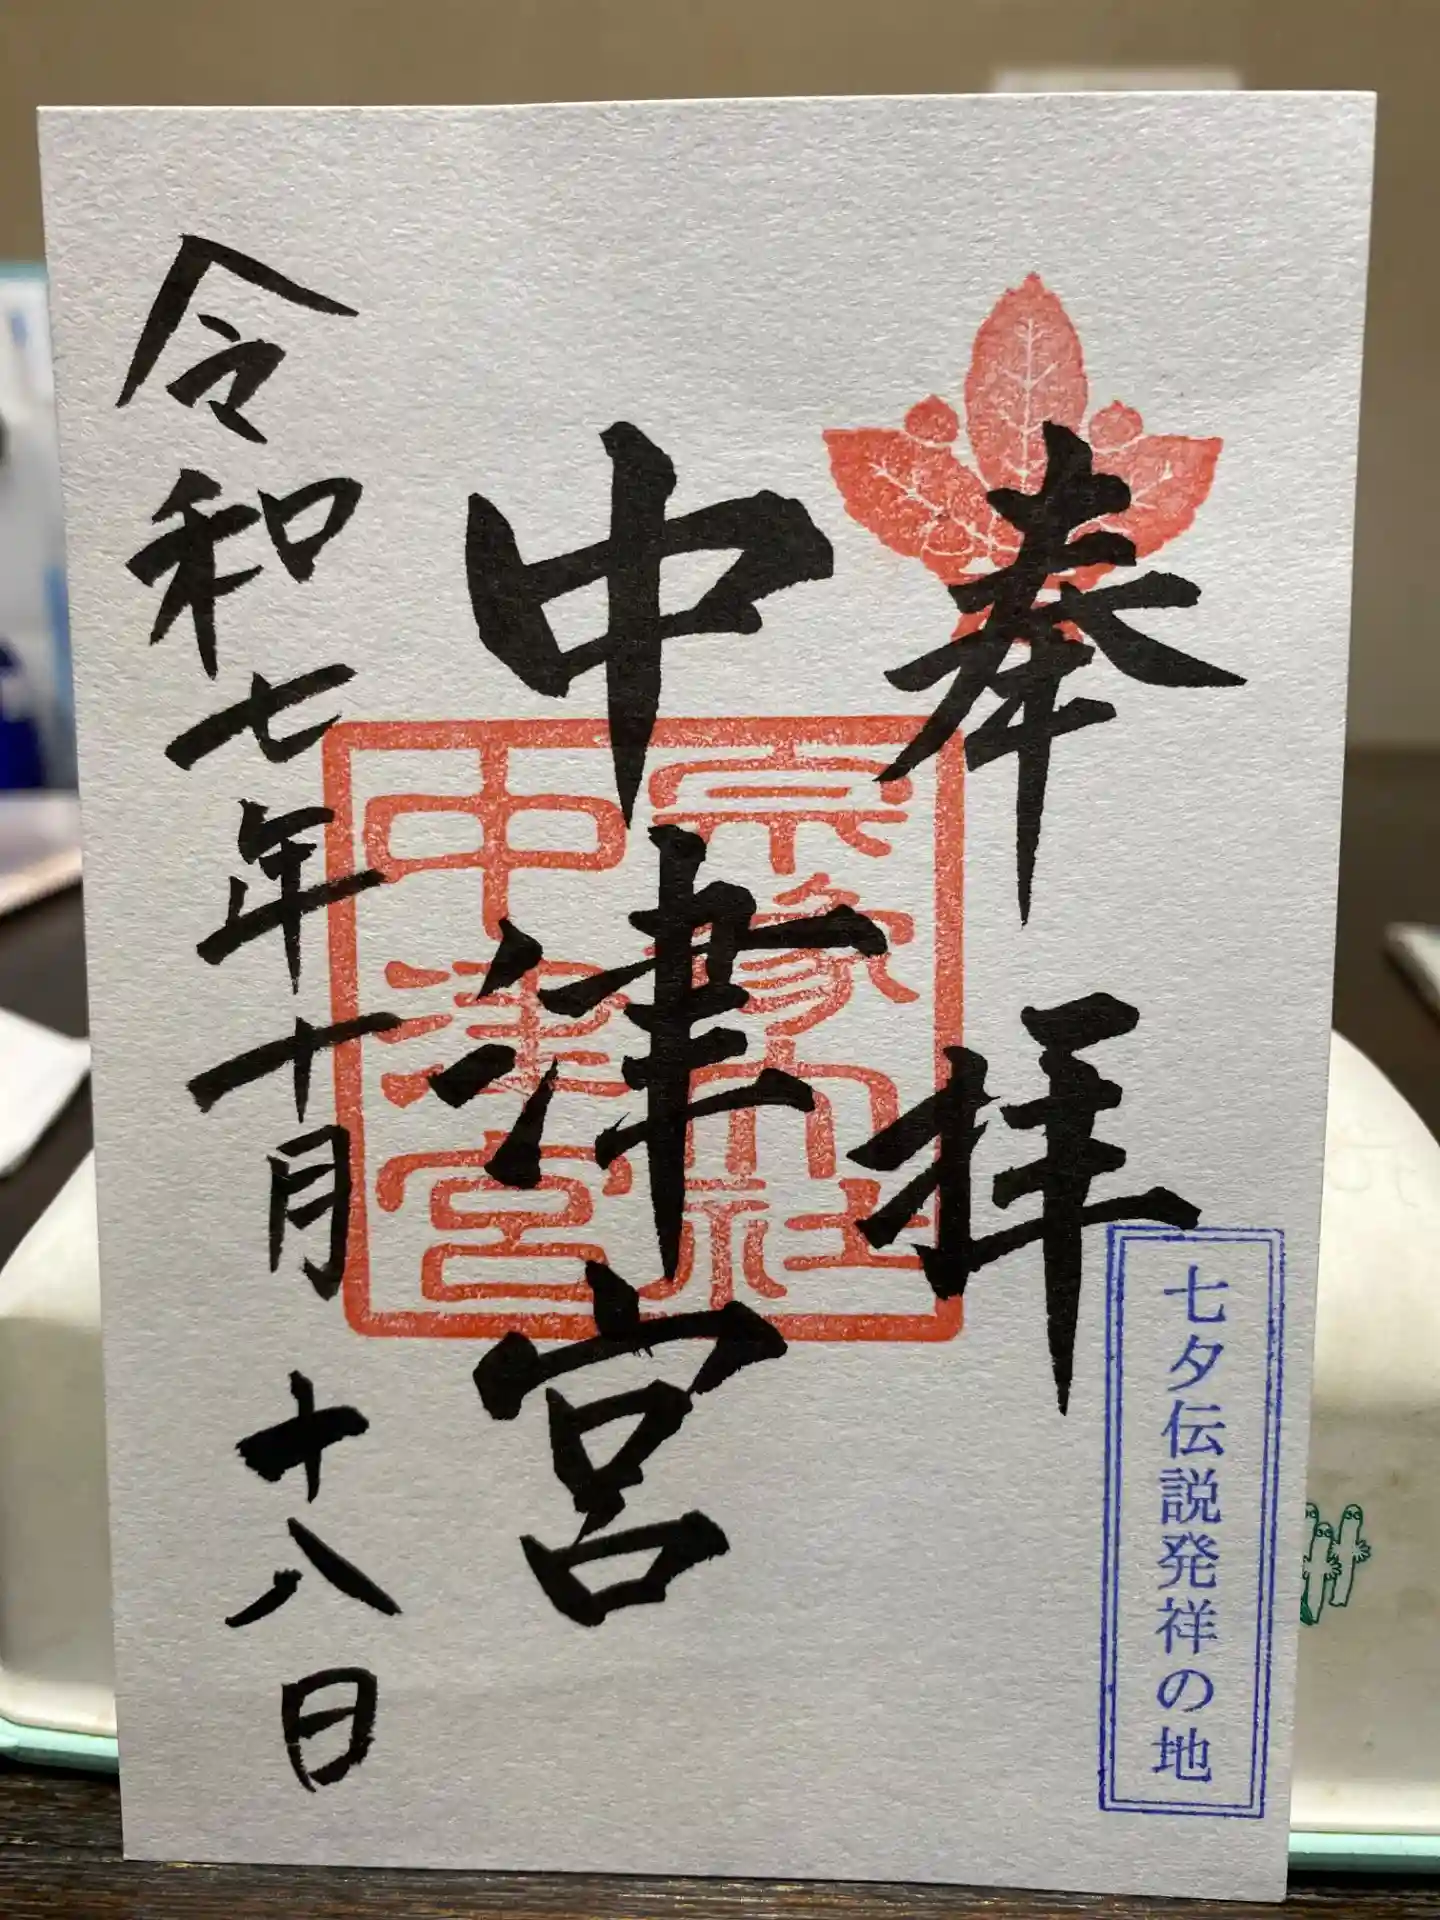 奉拝
中津宮
宗像大社
中津宮
令和七年十月十八日
七夕伝説発祥の地